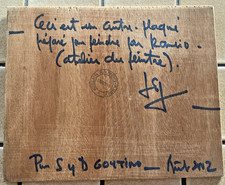 Ceci est un autre plaqué
préparé pour peindre par Romeio.
(atelier du peintre).
Pour S y D
Août 2012